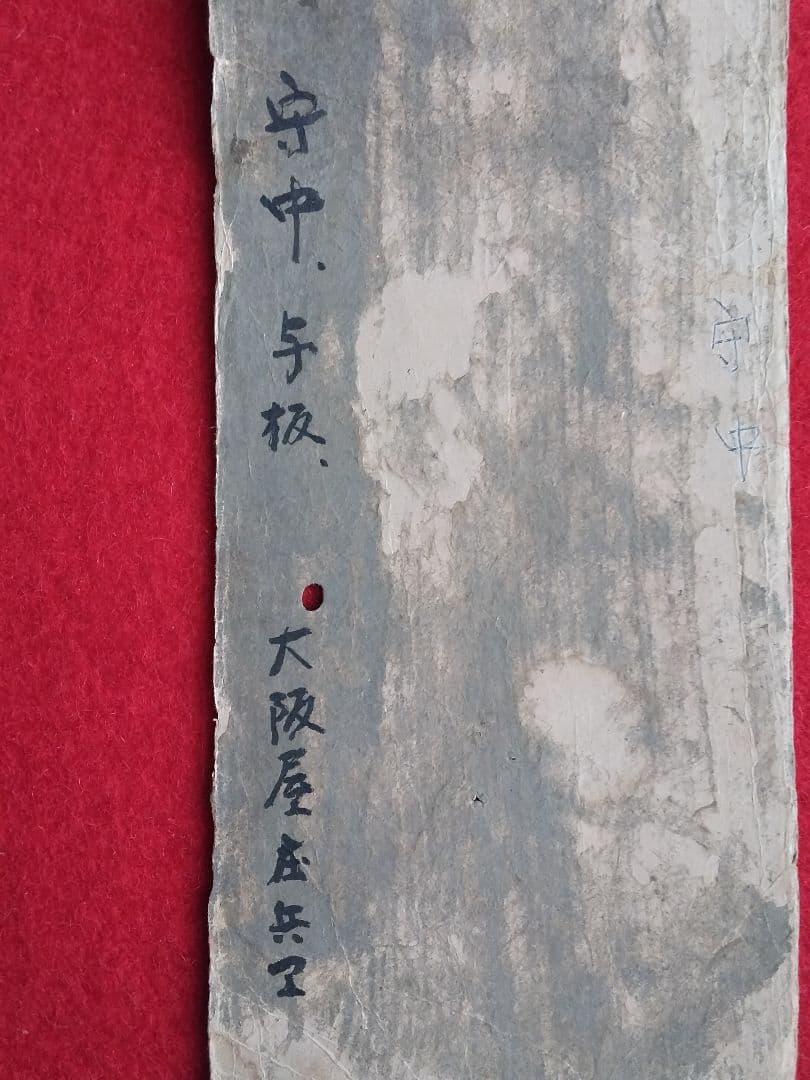 守中
守中、与板、大阪屋庄兵ヱ